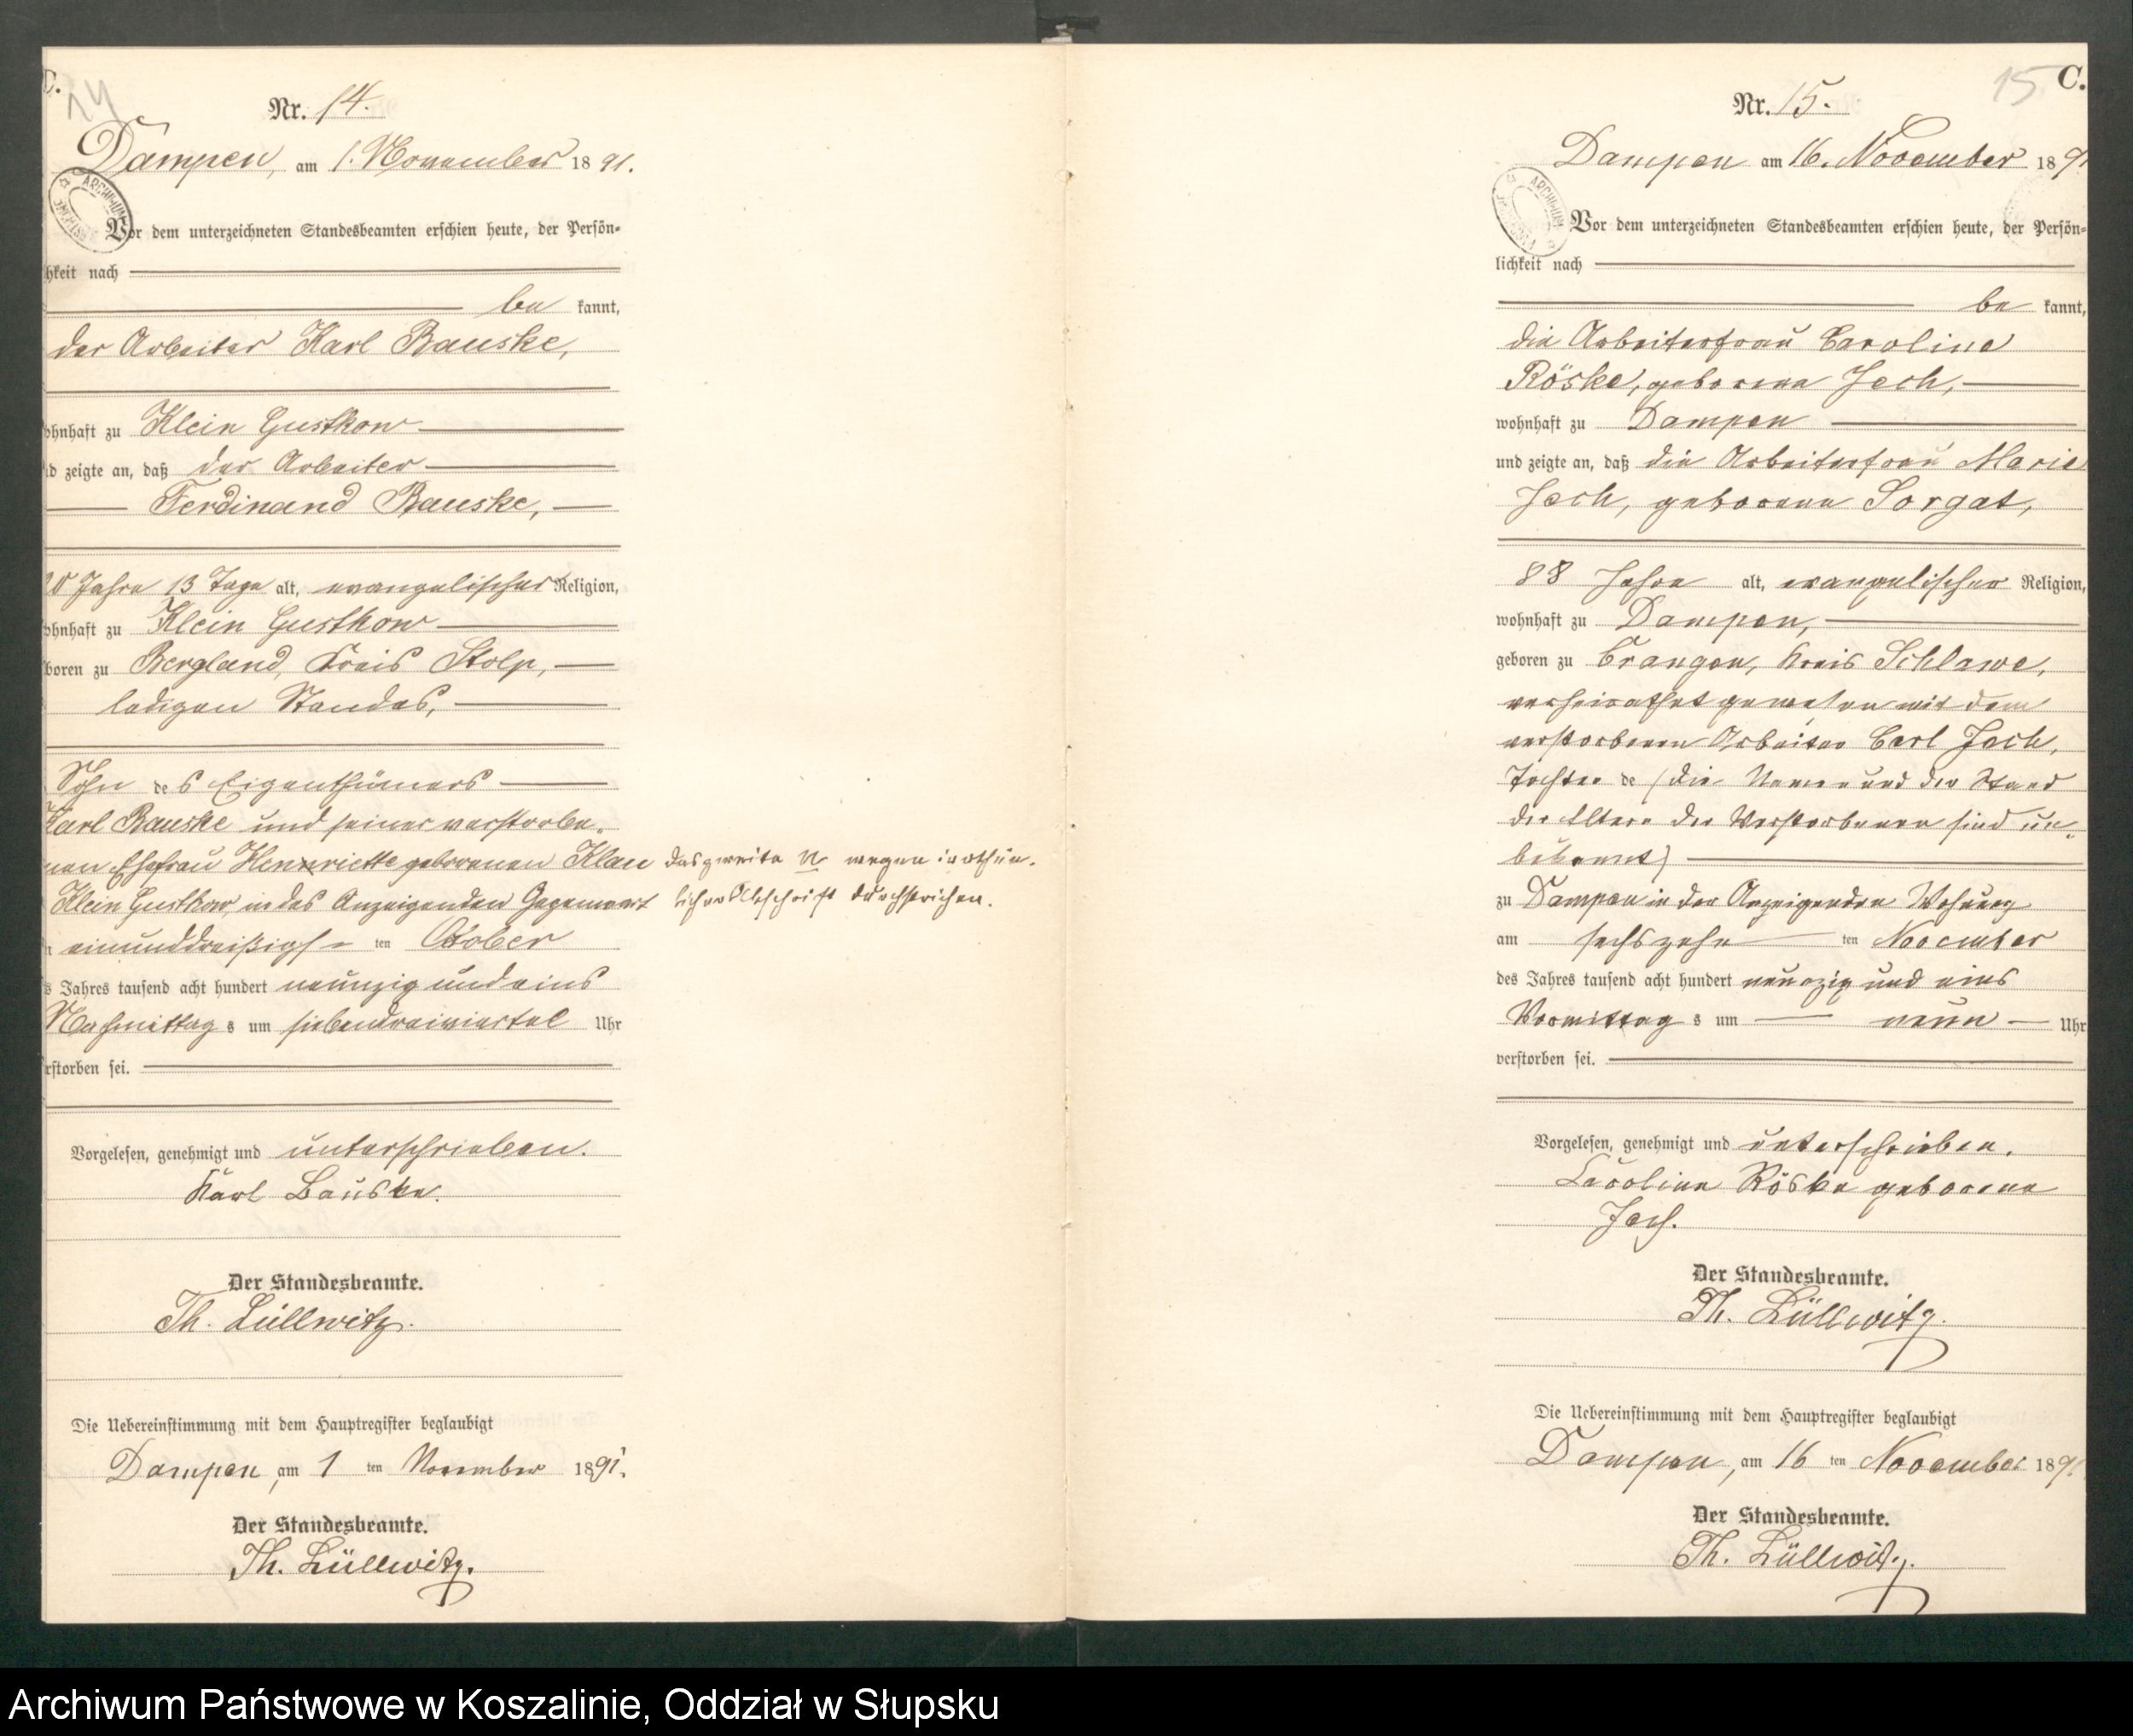 C.
14
Nr. 14.
Dampen, am 1. November 1891.
Vor dem unterzeichneten Standesbeamten erschien heute, der Persön-
hkeit nach
be kannt,
der Arbeiter Karl Bauske,
ohnhaft zu Klein Gustkow
d zeigte an, daß der Arbeiter
Ferdinand Bauske,
Jahre 13 Tage alt, evangelischer Religion,
ohnhaft zu Klein Gustkow
boren zu Bergland, Kreis Stolp,
ledigen Standes,
Sohn des Eigenthümers
Karl Bauske und seiner verstorbe-
nen Ehefrau Hennriette geborenen Klau das zweite n wegen irrthüm-
Klein Gustkow, in des Anzeigenden Gegenwart licher Abschrift durchstrichen.
einunddreißigs ten Otober
s Jahres tausend acht hundert neunzig und eins
Nachmittags um siebendreiviertel Uhr
rstorben sei.
Vorgelesen, genehmigt und unterschrieben.
Karl Bauske.
Der Standesbeamte.
Th. Lüllwitz.
Die Uebereinstimmung mit dem Hauptregister beglaubigt
Dampen, am 1 ten November 1891.
Der Standesbeamte.
Th. Lüllwitz.
15
C.
Nr. 15.
Dampen am 16. November 1891
Vor dem unterzeichneten Standesbeamten erschien heute, der Persön-
lichkeit nach
be kannt,
die Arbeiterfrau Caroline
Röske, geborene Jech,
wohnhaft zu Dampen
und zeigte an, daß die Arbeiterfrau Marie
Jech, geborene Sorgat,
88 Jahre alt, evangelischer Religion,
wohnhaft zu Dampen,
geboren zu Crangen, Kreis Schlawe,
verheirathet gewesen mit dem
verstorbenen Arbeiter Carl Jech,
Tochter de (die Namen und der Stand
der Eltern der Verstorbenen sind un-
bekannt)
zu Dampen in der Anzeigenden Wohnung
am sechszehn ten November
des Jahres tausend acht hundert neunzig und eins
Vormittags um neun Uhr
verstorben sei.
Vorgelesen, genehmigt und unterschrieben.
Caroline Röske geborene
Jech.
Der Standesbeamte.
Th. Lüllwitz.
Die Uebereinstimmung mit dem Hauptregister beglaubigt
Dampen, am 16 ten November 1891
Der Standesbeamte.
Th. Lüllwitz.
Archiwum Państwowe w Koszalinie, Oddział w Słupsku